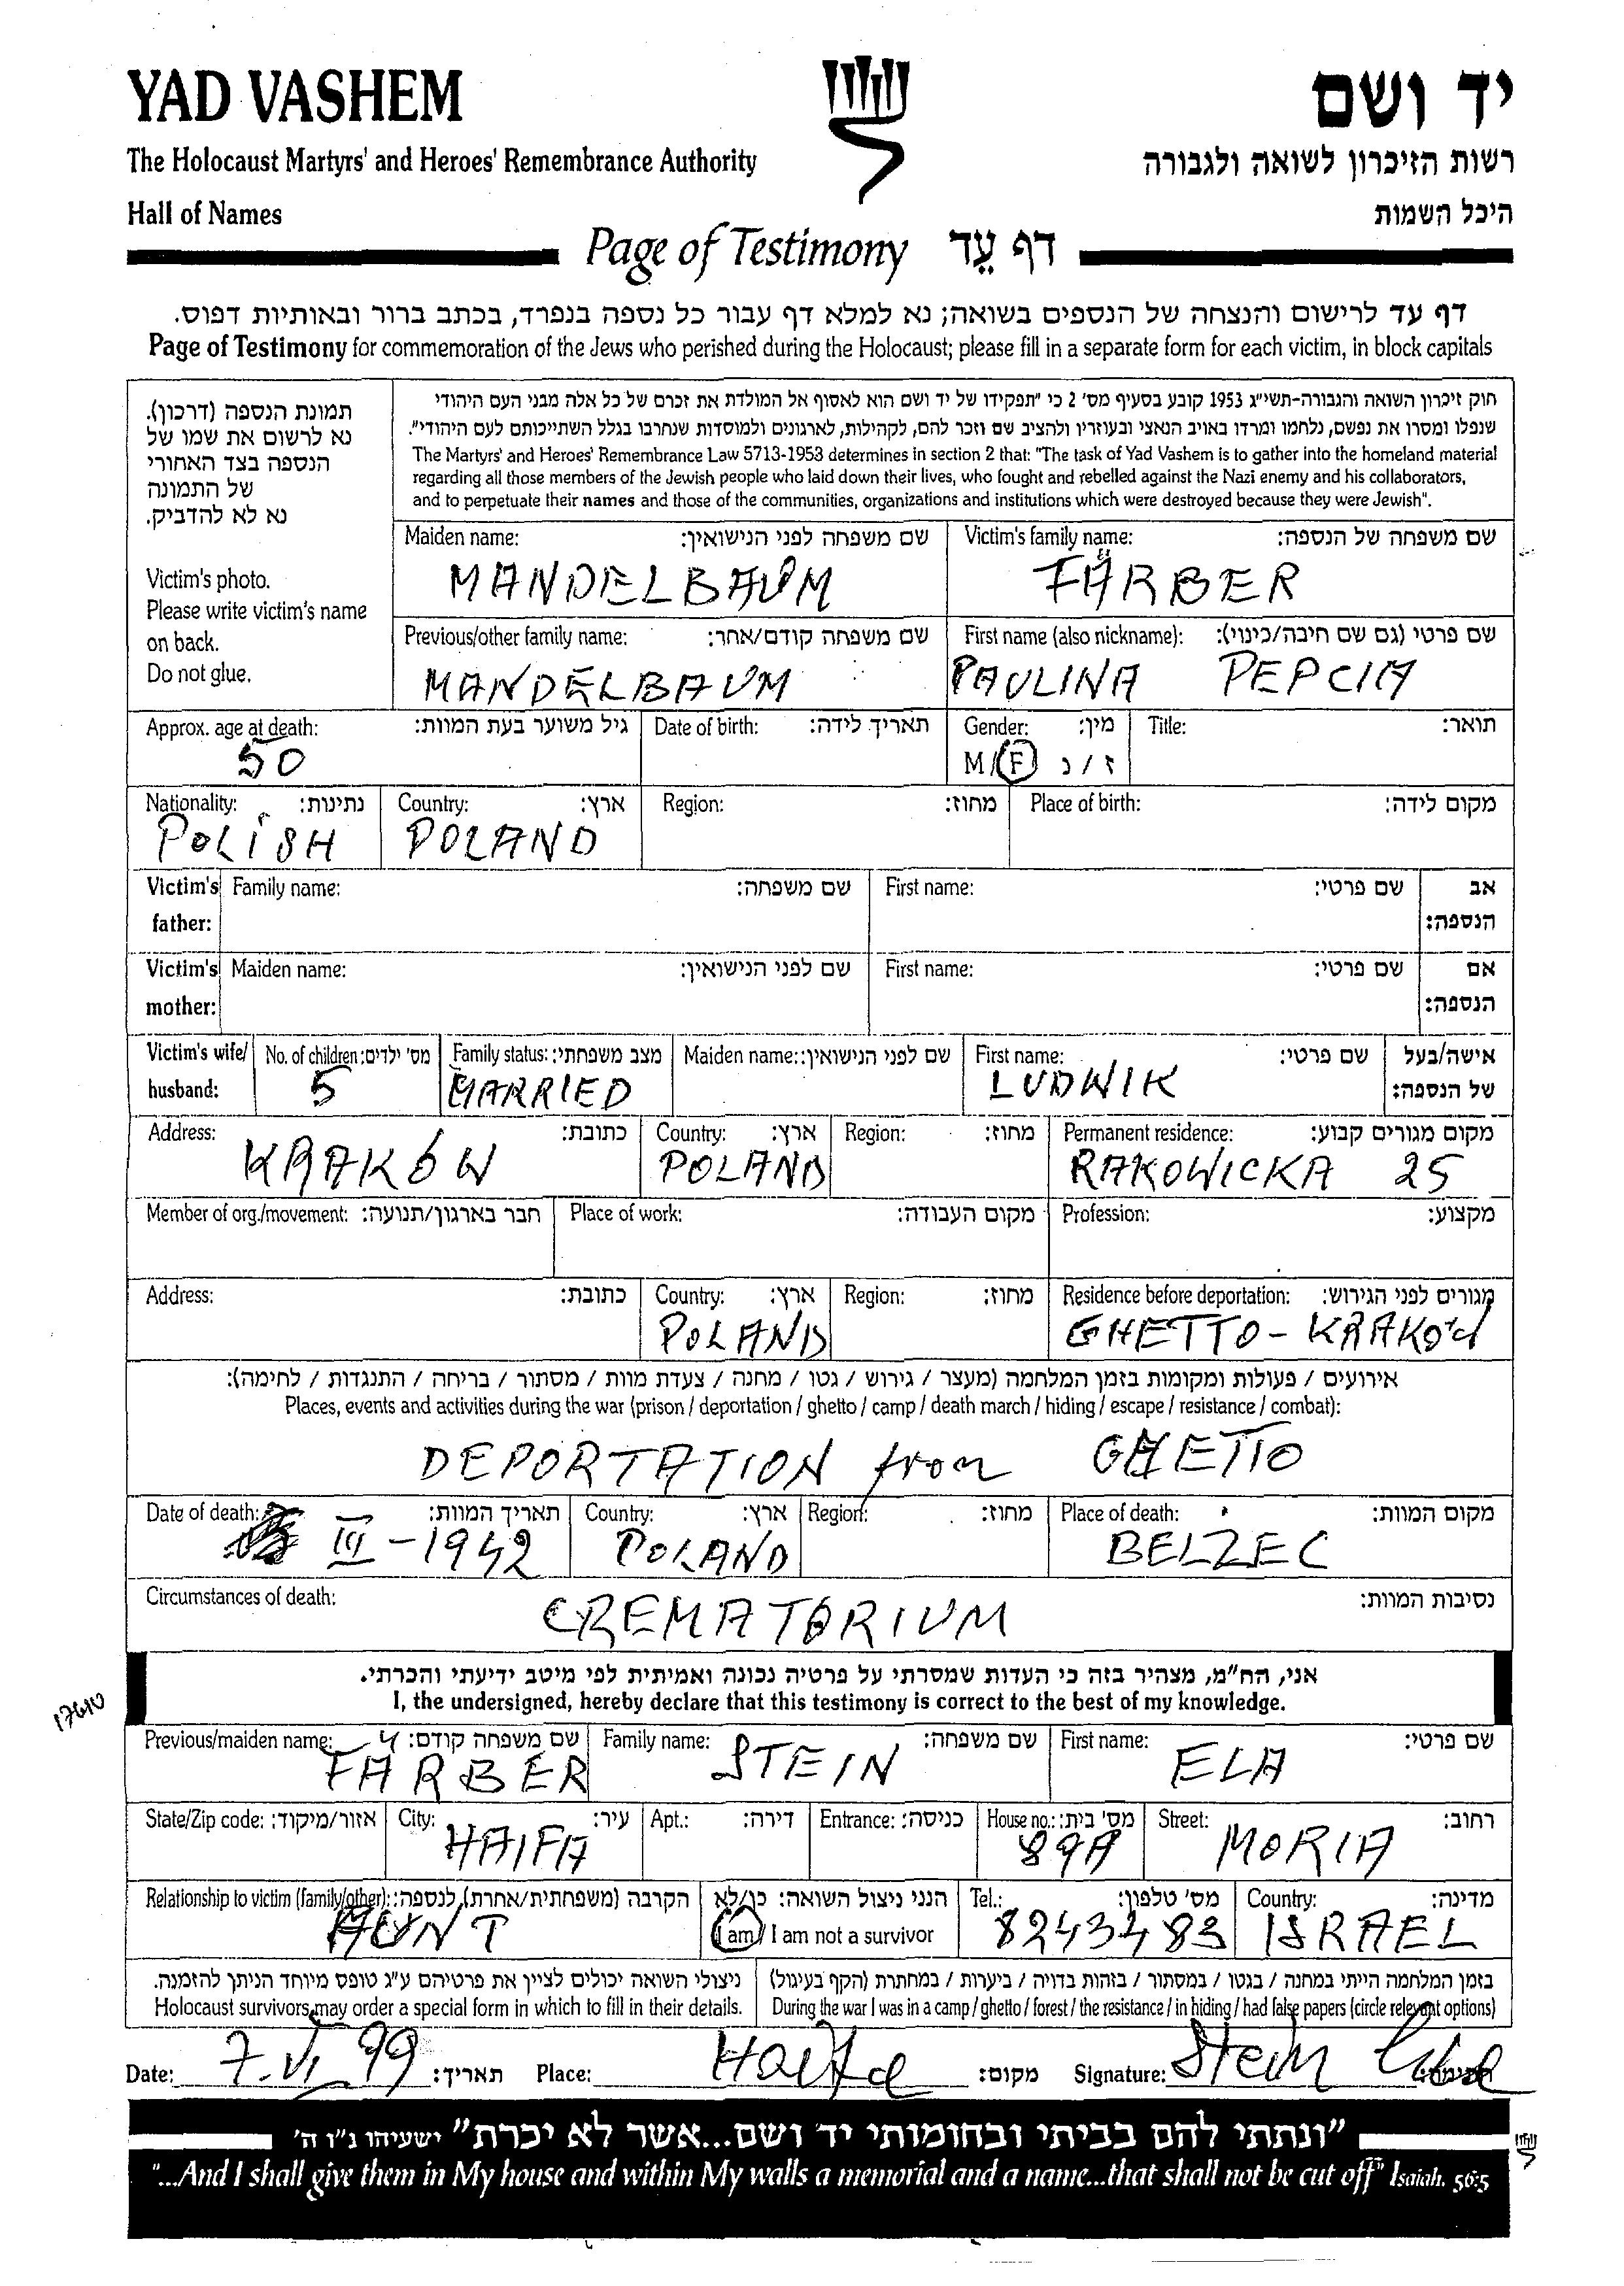 YAD VASHEM
יד ושם
The Holocaust Martyrs' and Heroes' Remembrance Authority
רשות הזיכרון לשואה ולגבורה
Hall of Names
היכל השמות
Page of Testimony דף עֵד
דף עד לרישום והנצחה של הנספים בשואה; נא למלא דף עבור כל נספה בנפרד, בכתב ברור ובאותיות דפוס.
Page of Testimony for commemoration of the Jews who perished during the Holocaust; please fill in a separate form for each victim, in block capitals
תמונת הנספה (דרכון).
נא לרשום את שמו של
הנספה בצד האחורי
של התמונה
נא לא להדביק.
Victim's photo.
Please write victim's name
on back.
Do not glue.
חוק זיכרון השואה והגבורה-תשי״ג 1953 קובע בסעיף מס' 2 כי "תפקידו של יד ושם הוא לאסוף אל המולדת את זכרם של כל אלה מבני העם היהודי
שנפלו ומסרו את נפשם, נלחמו ומרדו באויב הנאצי ובעוזריו ולהציב שם וזכר להם, לקהילות, לארגונים ולמוסדות שנחרבו בגלל השתייכותם לעם היהודי".
The Martyrs' and Heroes' Remembrance Law 5713-1953 determines in section 2 that: "The task of Yad Vashem is to gather into the homeland material
regarding all those members of the Jewish people who laid down their lives, who fought and rebelled against the Nazi enemy and his collaborators,
and to perpetuate their names and those of the communities, organizations and institutions which were destroyed because they were Jewish".
Maiden name: שם משפחה לפני הנישואין: Victim's family name: שם משפחה של הנספה:
MANDELBAUM FÄRBER
Previous/other family name: שם משפחה קודם/אחר: First name (also nickname): שם פרטי (גם שם חיבה/כינוי):
MANDELBAUM PAULINA PEPCIA
Approx. age at death: גיל משוער בעת המוות: Date of birth: תאריך לידה: Gender: מין: Title: תואר:
50 M/F ז/נ
Nationality: נתינות: Country: ארץ: Region: מחוז: Place of birth: מקום לידה:
POLISH POLAND
Victim's father: Family name: שם משפחה: First name: שם פרטי: אב הנספה:
Victim's mother: Maiden name: שם לפני הנישואין: First name: שם פרטי: אם הנספה:
Victim's wife/ husband: No. of children: מס' ילדים: Family status: מצב משפחתי: Maiden name: שם לפני הנישואין: First name: שם פרטי: אישה/בעל של הנספה:
5 MARRIED LUDWIK
Address: כתובת: Country: ארץ: Region: מחוז: Permanent residence: מקום מגורים קבוע:
KRAKÓW POLAND RAKOWICKA 25
Member of org./movement: חבר בארגון/תנועה: Place of work: מקום העבודה: Profession: מקצוע:
Address: כתובת: Country: ארץ: Region: מחוז: Residence before deportation: מגורים לפני הגירוש:
POLAND GHETTO - KRAKÓW
אירועים / פעולות ומקומות בזמן המלחמה (מעצר / גירוש / גטו / מחנה / צעדת מוות / מסתור / בריחה / התנגדות / לחימה):
Places, events and activities during the war (prison / deportation / ghetto / camp / death march / hiding / escape / resistance / combat):
DEPORTATION from GHETTO
Date of death: תאריך המוות: Country: ארץ: Region: מחוז: Place of death: מקום המוות:
III - 1942 POLAND BELZEC
Circumstances of death: נסיבות המוות:
CREMATORIUM
אני, הח״מ, מצהיר בזה כי העדות שמסרתי על פרטיה נכונה ואמיתית לפי מיטב ידיעתי והכרתי.
I, the undersigned, hereby declare that this testimony is correct to the best of my knowledge.
Previous/maiden name: שם משפחה קודם: Family name: שם משפחה: First name: שם פרטי:
FÄRBER STEIN ELA
State/Zip code: אזור/מיקוד: City: עיר: Apt.: דירה: Entrance: כניסה: House no.: מס' בית: Street: רחוב:
HAIFA 89A MORIA
Relationship to victim (family/other): הקרבה (משפחתית/אחרת) לנספה: הנני ניצול השואה: כן/לא Tel.: מס' טלפון: Country: מדינה:
AUNT I am / I am not a survivor 8243483 ISRAEL
ניצולי השואה יכולים לציין את פרטיהם ע״ג טופס מיוחד הניתן להזמנה. בזמן המלחמה הייתי במחנה / בגטו / במסתור / בזהות בדויה / ביערות / במחתרת (הקף בעיגול)
Holocaust survivors may order a special form in which to fill in their details. During the war I was in a camp / ghetto / forest / the resistance / in hiding / had false papers (circle relevant options)
Date: 7. VI 99 תאריך: Place: Haifa מקום: Signature: Stein חתימה:
"ונתתי להם בביתי ובחומותי יד ושם...אשר לא יכרת" ישעיהו נ״ו ה'
"...And I shall give them in My house and within My walls a memorial and a name...that shall not be cut off" Isaiah. 56:5